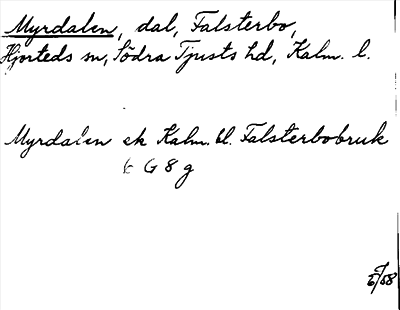 Myrdalen, dal, Falsterbo,
Hjorteds sn, Södra Tjusts hd, Kalm. l.
Myrdalen ek Kalm. bl. Falsterbobruk
6 G 8 g